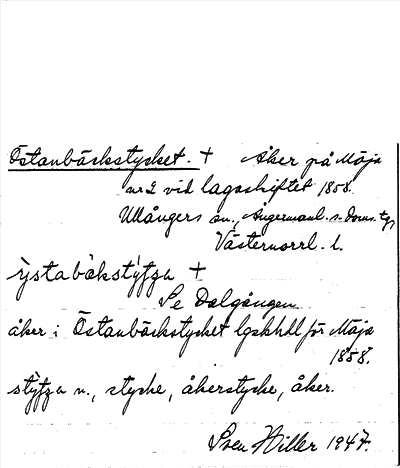 Östanbäckstycket. † Åker på Mäja
nr 2 vid lagaskiftet 1858.
Ullångers sn., Ångermanl. s. Doms. tg,
Västernorrl. l.
ỳstabàkstỳtza †
Se Dalgången
åker i Östanbäckstycket lgskhll för Mäja
1858.
stỳtza n., stycke, åkerstycke, åker.
Sven Hiller 1947.